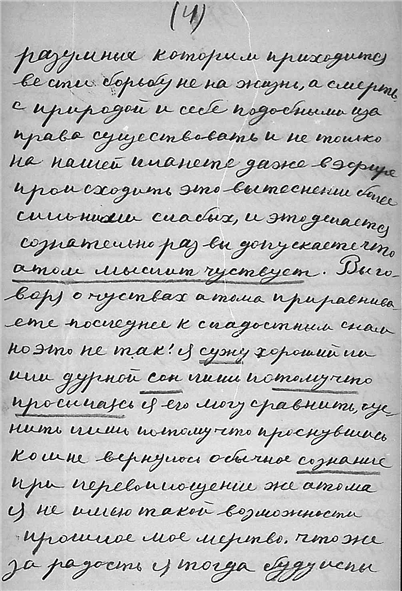 (4)
разумных которим приходится
вести борьбу не на жизнь, а смерть
с природой и себе подобными иза
права существовать и не только
на нашей планете даже в эфире
происходить это вытеснении более
сильными слабых, и это делается
сознательно раз ви допускаете что
атом мыслит чуствует. Выго-
варя о чуствах атома приравнива-
ете последнее к сладостным снам
но это не так! я сужу хороший ли
или дурной сон лиш потому что
просипаясь я его могу сравнить, оце-
нить лиш потомучто проснувшись
комне вернулося обычное сознание
при перевоплощение же атома
я не имею такой возможности
прошлое мое мертво. что же
за радость я тогда буду испы